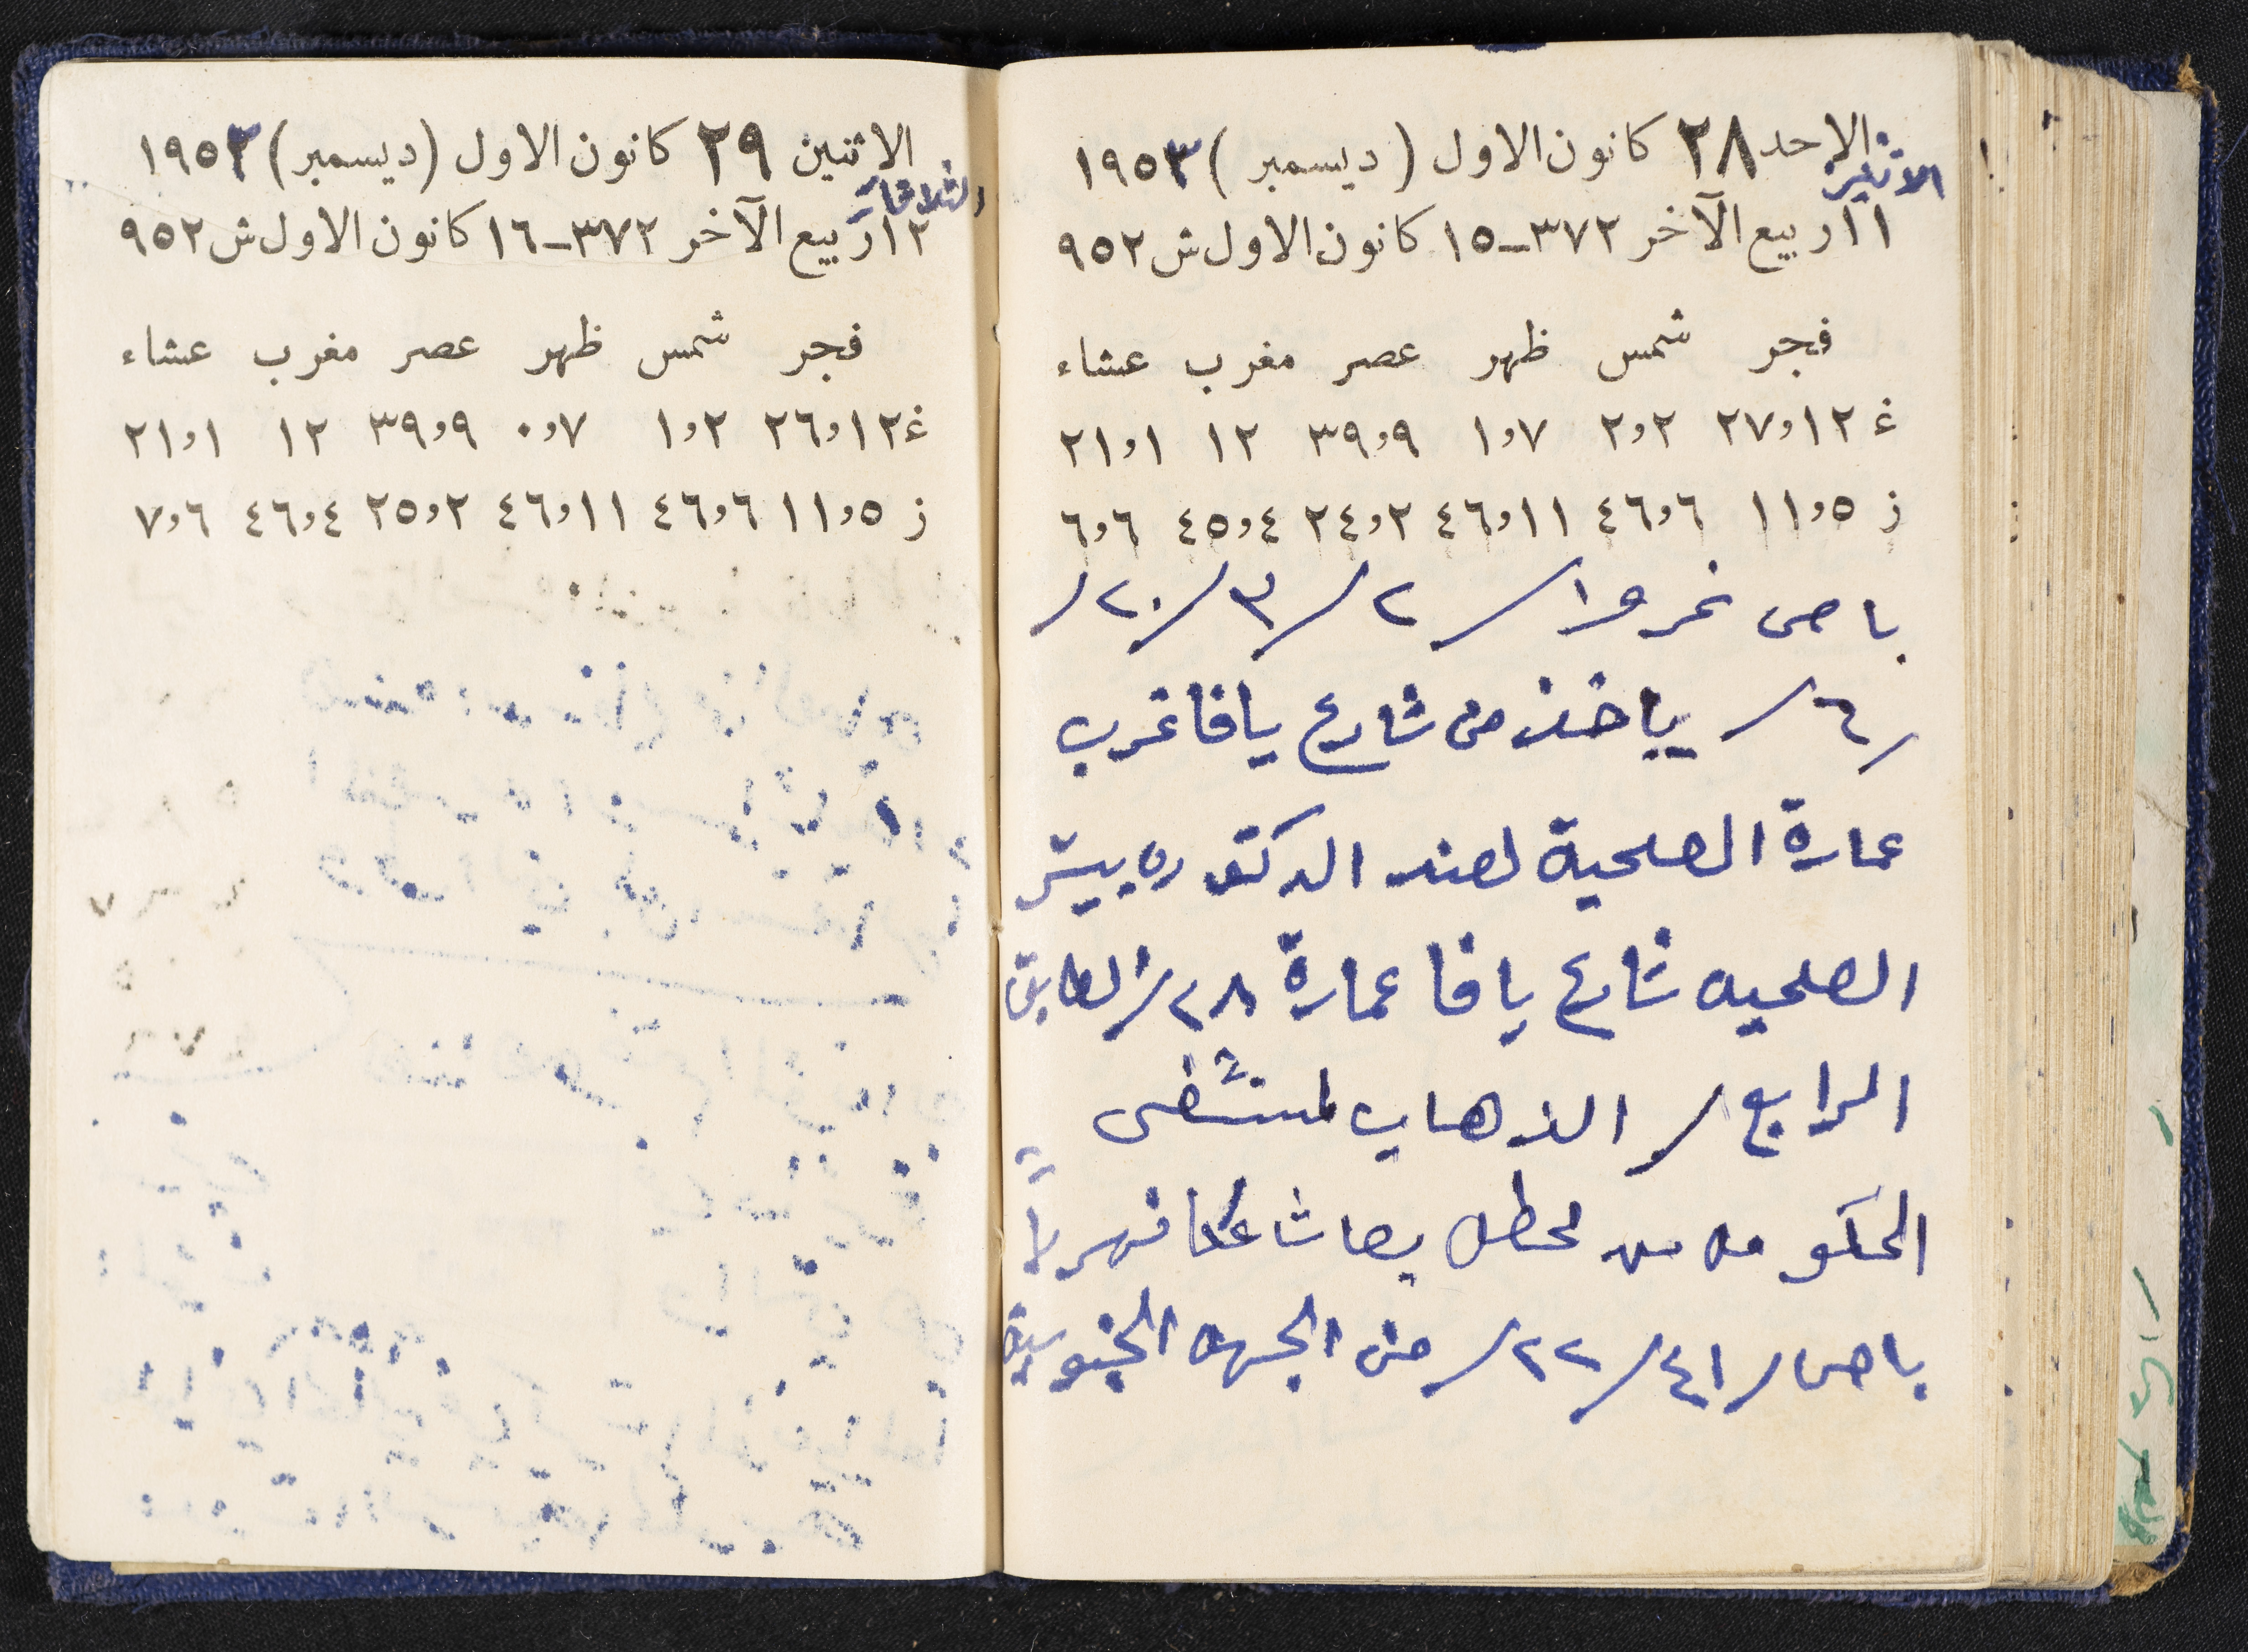 الاحد ٢٨ كانون الاول (ديسمبر) ١٩٥٣
الاثنين
١١ ربيع الآخر ٣٧٢ـ١٥ كانون الاول ش ٩٥٢
فجر شمس ظهر عصر مغرب عشاء
غ ١٢و٢٧ ٢و٢ ٧و١ ٩و٣٩ ١٢ ١و٢١
ز ٥و١١ ٦و٤٦ ١١و٤٦ ٢و٢٤ ٤و٤٥ ٦و٦
باص نمروا / ٢ / ٣ / ٢٠ /
/ ٦ / ياخذ من شارع يافا غرب
عمارة الصحية لعند الدكتور
الصحيه شارع يافا عمارة ٢٨ / الطابق
الرابع / الذهاب لمستشفى
الحكومه
باص / ٤١ / ٢٢ / من الجهه الجنوبية
الاثنين ٢٩ كانون الاول (ديسمبر) ١٩٥٣
الثلاثاء
١٢ ربيع الآخر ٣٧٢ـ١٦ كانون الاول ش ٩٥٢
فجر شمس ظهر عصر مغرب عشاء
غ ١٢و٢٦ ٢و١ ٧و٠ ٩و٣٩ ١٢ ١و٢١
ز ٥و١١ ٦و٤٦ ١١و٤٦ ٢و٢٥ ٤و٤٦ ٦و٧